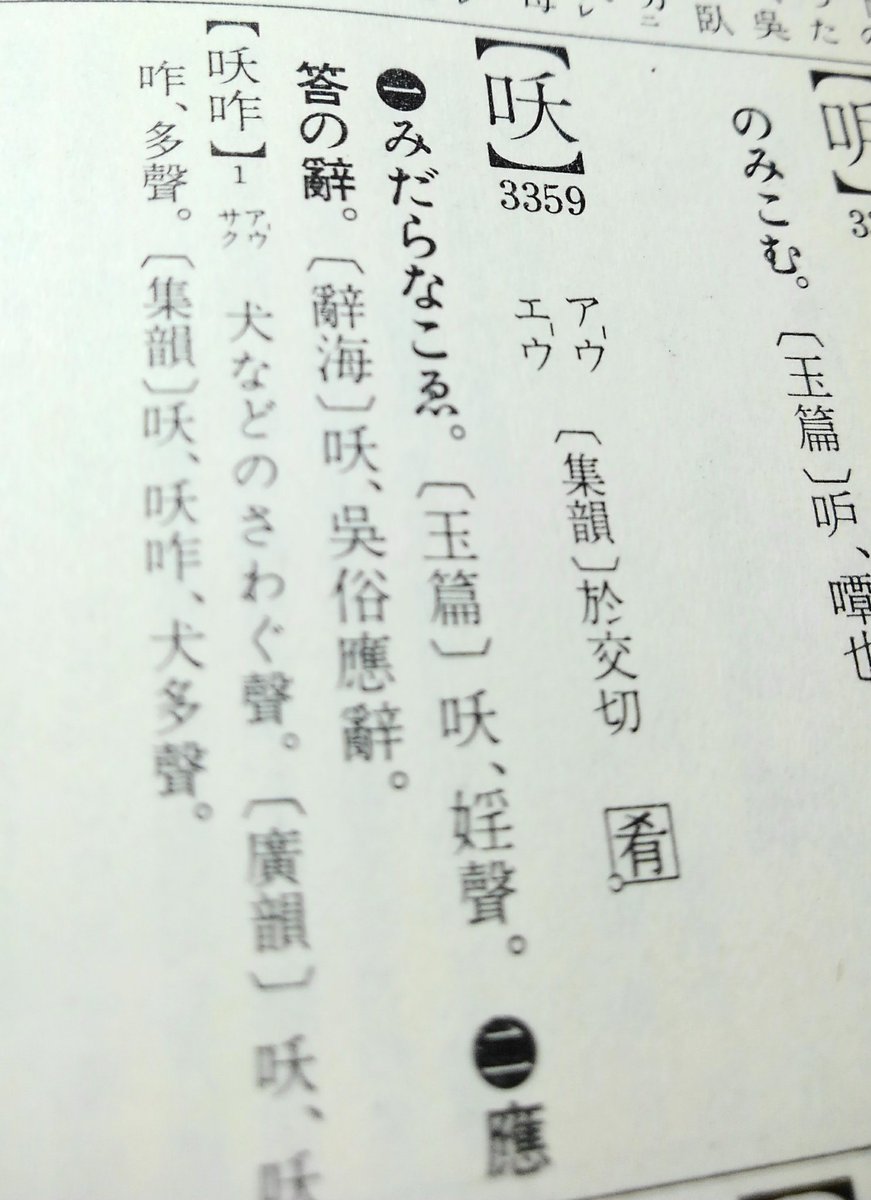 った
吳
臥
のみこむ。〔玉篇〕、嘾也
【㕭】3359 アウ エウ 〔集韻〕於交切 肴
㊀みだらなこゑ。〔玉篇〕㕭、婬聲。㊁應
答の辭。〔辭海〕㕭、吳俗應辭。
【㕭咋】1 アウサク 犬などのさわぐ聲。〔廣韻〕㕭、㕭
咋、多聲。〔集韻〕㕭、㕭咋、犬多聲。